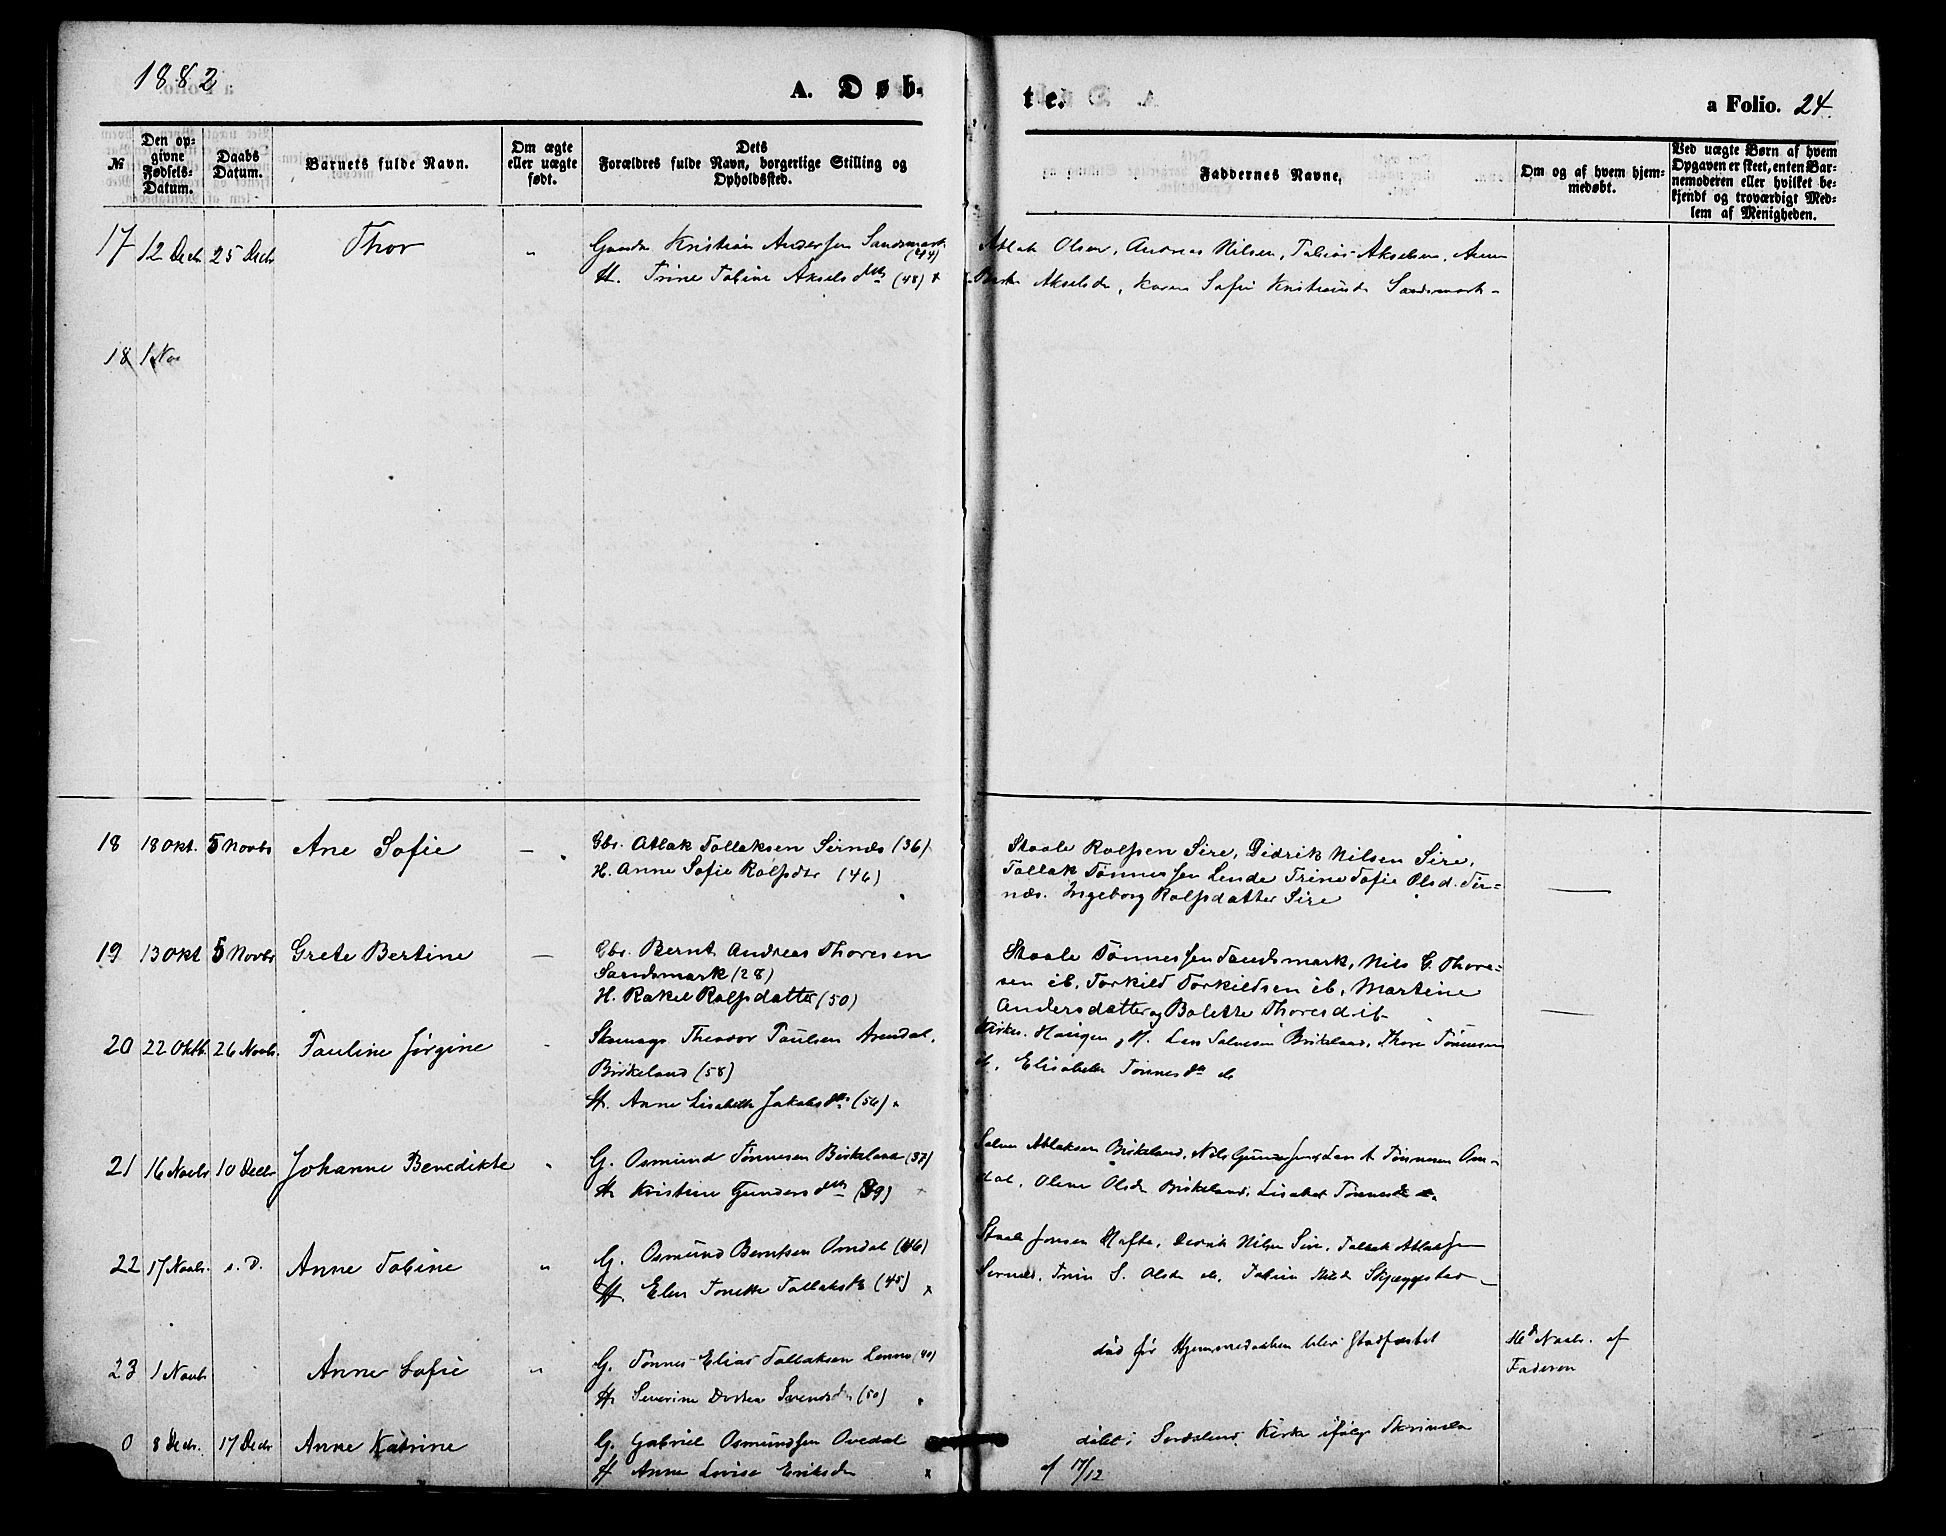 1882
A. Døb-
te.
a Folio. 24.
№
Den op-
givne
Fødsels-
Datum.
Daabs
Datum.
Barnets fulde Navn.
Om ægte
eller uægte
født.
Dets
Forældres fulde Navn, borgerlige Stilling og
Opholdssted.
Faddernes Navne,
Om og af hvem hjem-
medøbt.
Ved uægte Børn af hvem
Opgaven er skeet, enten Bar-
nemoderen eller hvilket be-
kjendt og troværdigt Med-
lem af Menigheden.
17 12 Decbr 25 Decbr Thor " Kristian Andersen Sandsmark
(44)
H. Trine Tobine Aksels dtr (48) x
Atlak Olsen, Andreas Nilsen, Tobias Akselsen, Anne
Akselsdr, Karen Sofie Sandsmark -
18 1 Nov
18 18 Okt. 5 Novbr Ane Sofie — Gbr. Atlak Tollaksen Sirnæs (36)
H. Anne Sofie Rolfsdtr (46)
Staale Rolfsen Sire, Didrik Nilsen Sire,
Tollak Tønnessen Lende Trine Sofie Olsd. Sir=
næs. Ingeborg Rolfsdatter Sire
19 13 Okt 5 Novbr Grete Bertine — Gbr. Bernt Andreas Thoresen
Sandsmark (28)
H. Rakel Rolfsdatter (50)
Staale Tønnessen Sandsmark, Nils G. Thore-
sen ib, Torkild Torkildsen ib, Martine
Andersdatter og Bolette Thoresd ib
20 22 Oktb. 26 Novbr. Pauline Jørgine - Theodor Paulsen Arendal,
Birkeland (58)
H. Anne Lisabeth Jakobs dtr (56) x
Haugen, Lars Salvesen Birkeland, Thore Tønnesen
do, Elisabeth Tønnes dtr do
21 16 Novbr 10 Decbr Johanne Benedikte " G. Osmund Tønnesen Birkeland (37)
H. Kristine Gunders dtr (39) x
Salve Atlaksen Birkeland, Nils Lars A. Tønnesen Om-
dal, Oline Olsdr Birkeland, Lisabet
22 17 Novbr. s. D. Anne Tobine " G. Osmund Berntsen Omdal (46)
H. Elen Tonette Tollaksdr (45) x
Staale Jonsen Hafte, Didrik Nilsen Sire, Tollak Atlaksen
Sirnæs, Trine S. Olsdr do, Tobine Skjeggestad -
23 1 Novbr Anne Sofie " G. Tønnes Elias Tollaksen (40)
H. Severine Dortea Svendsdr (50)
død før Hjemmedaaben blev stadfæstet
16d Novbr. af
Faderen
0 8 Decbr. 17 Decbr Anne Katrine G. Gabriel Osmundsen Ovedal
H Anne Lovise Eriksdr x
døbt i Kirke ifølge Skrivelse
af 17/12